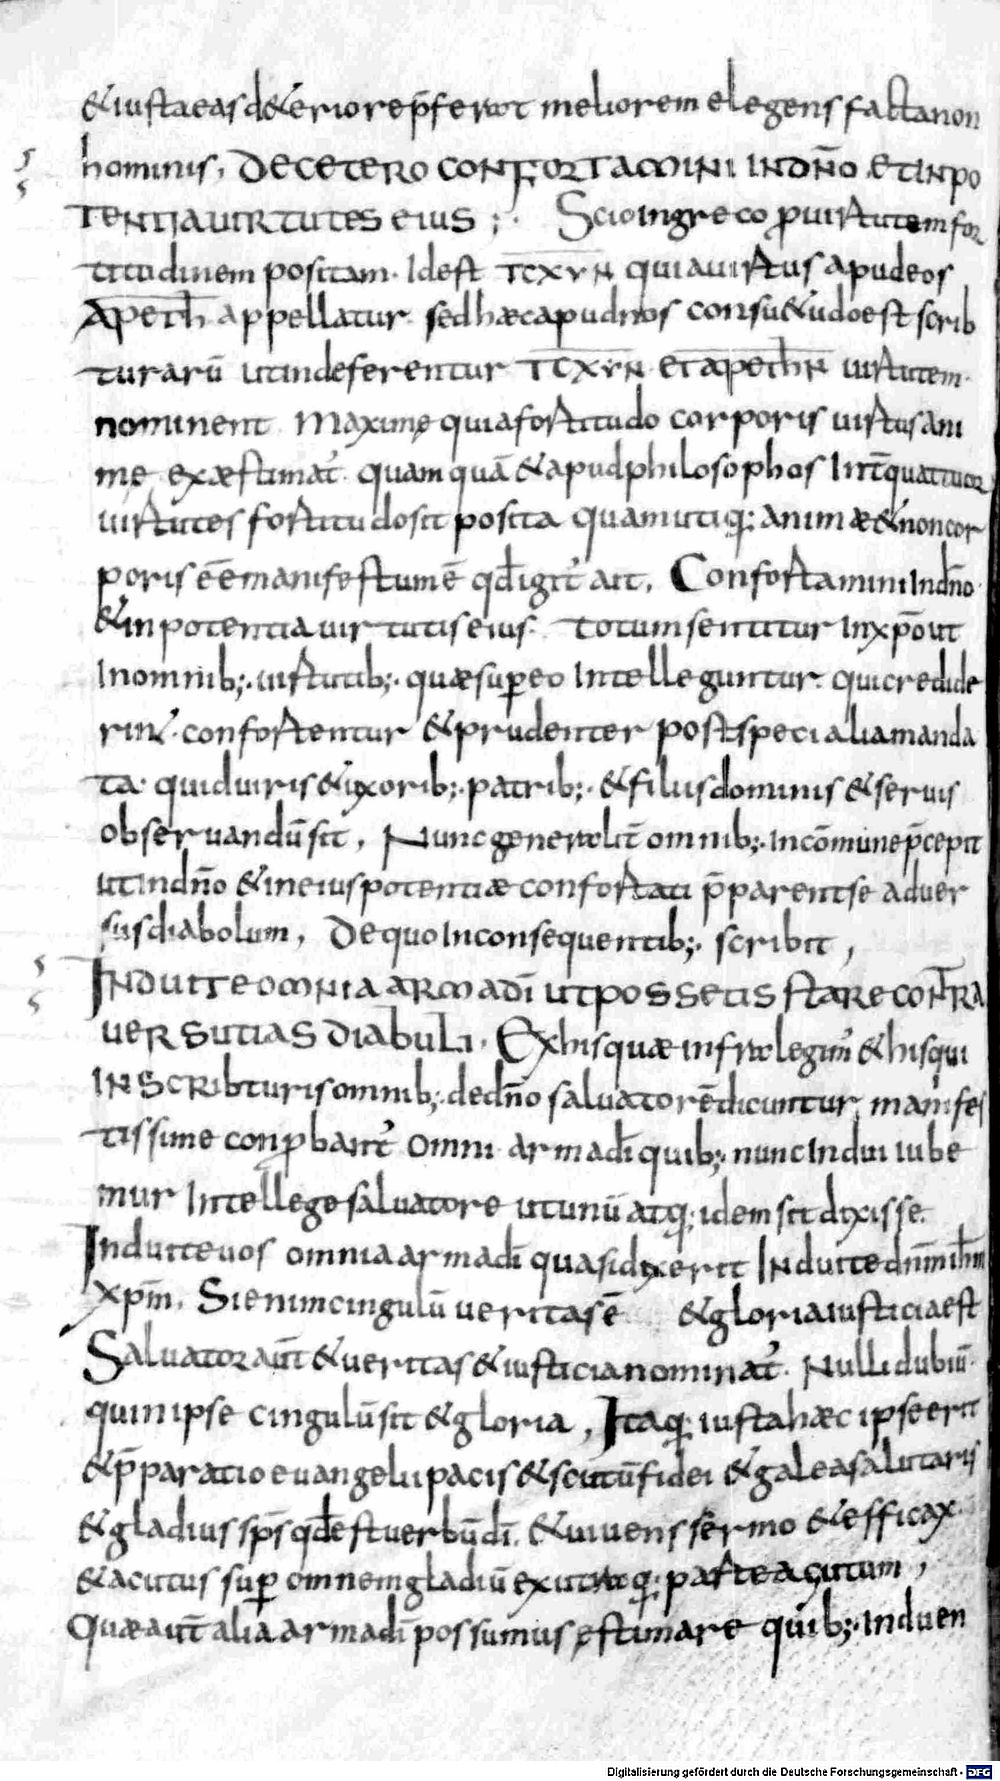 &iustaeasd&eriorep̄ferat meliorem elegens factanon
hominis, DECETERO CONFORTAMINI INDN̄O ETINPO
TENTIAUIRTUTES EIUS ;· Scioingreco ꝓuirtutemfor
titudinem positam· Idest TCXYN quiauirtus apudeos
APETH appellatur· sedhæcapudnos consu&udoest scrib
turarū utindeferentur TCXYN ETAPETHN uirtutem·
nominent maxime quiafortitudo corporis uirtusani
mę exæstimat̄ quamquā &apudphilosophos Int̄quattuor
uirtutes fortitudosit posita quamutiq; animæ&noncor
poris eēmanifestumē qd̄igit̄ ait, Confortamini Indn̄o·
&inpotentiauirtutiseius· totumsentitur Inxp̄out
Inomnib;· uirtutib;· quæsup̲eo Intelleguntur· quicredide
rin̄t· confortentur &prudenter postspecialiamanda
ta· quiduiris&uxorib;· patrib;· &filiisdominis &seruis
obseruandūsit, Nuncgeneralit̄ omnib;· Incōmunep̄cepit
utIndn̄o &ineiuspotentiæconfortati p̄parentse aduer
susdiabolum, DequoInconsequentib;· scribit,
INDUITEOMNIA ARMADĪ UTPOSSETIS STARECONTRA
UERSUTIAS DIABULI· Exhisquæinfralegim̄ &hisqui
INSCRIBturisomnib;·dedn̄o saluatorēdicuntur manifes
tissime conꝓbant̄ omni armadīquib;· nuncIndui iube
mur Intellegesaluatore utunū atq; idemsitdixisse·
Induiteuos omniaarmadī quasidixerit Induitednm̄ ihm̄
xpm̄, Sienimcingulū ueritasē &gloriaiusticiaest
Saluatoraūt &ueritas&iusticianominat̄· Nullidubiū·
quinipse cingulūsit &gloria, Itaq; iustahæc ipseerit
&p̄paratioeuangeliipacis&scutūfidei &galeasalutaris
&gladiussps̄qd̄estuerbūdī· &uiuenssermo &efficax·
&acutus sup̲ omnemgladiū exutraq; parteacutum,
Quæaūt aliaarmadīpossumusęstimare quib;·Induen